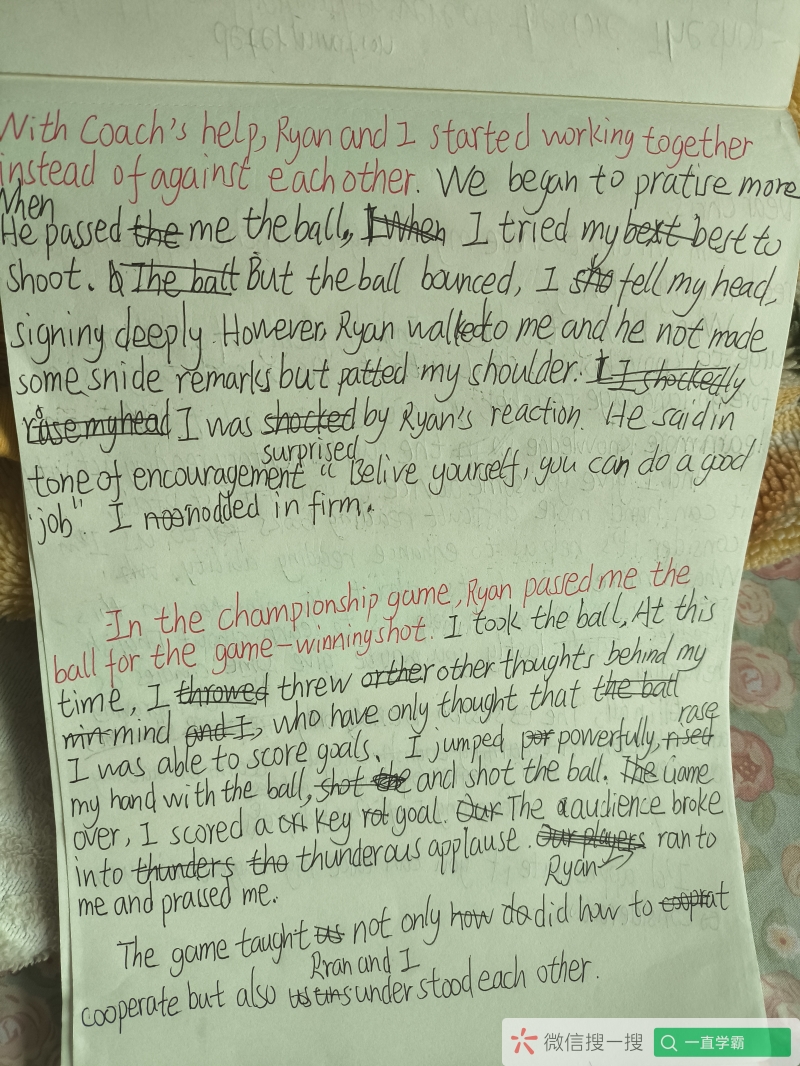 With Coach's help, Ryan and I started working together
instead of against each other. We began to pratise more
When
He passed the me the ball, I When I tried my bext best to
shoot. The ball But the ball bounced, I sho fell my head,
signing deeply. However, Ryan walked to me and he not made
some snide remarks but patted my shoulder. I I shockedly
rose my head I was shocked by Ryan's reaction. He said in
surprised
tone of encouragement “Belive yourself, you can do a good
job”. I noo nodded in firm.
In the championship game, Ryan passed me the
ball for the game-winning shot. I took the ball, At this
time, I throwed threw orther other thoughts behind my
min mind and I, who have only thought that the ball
I was able to score goals. I jumped por powerfully, rised
rase
my hand with the ball, shot the and shot the ball. The Game
over, I scored a key rot goal. Our The audience broke
into thunders tho thunderous applause. Our players ran to
Ryan
me and praised me.
The game taught us not only how do did how to cooprat
Rran and I
cooperate but also understood each other.
微信搜一搜
一直学霸